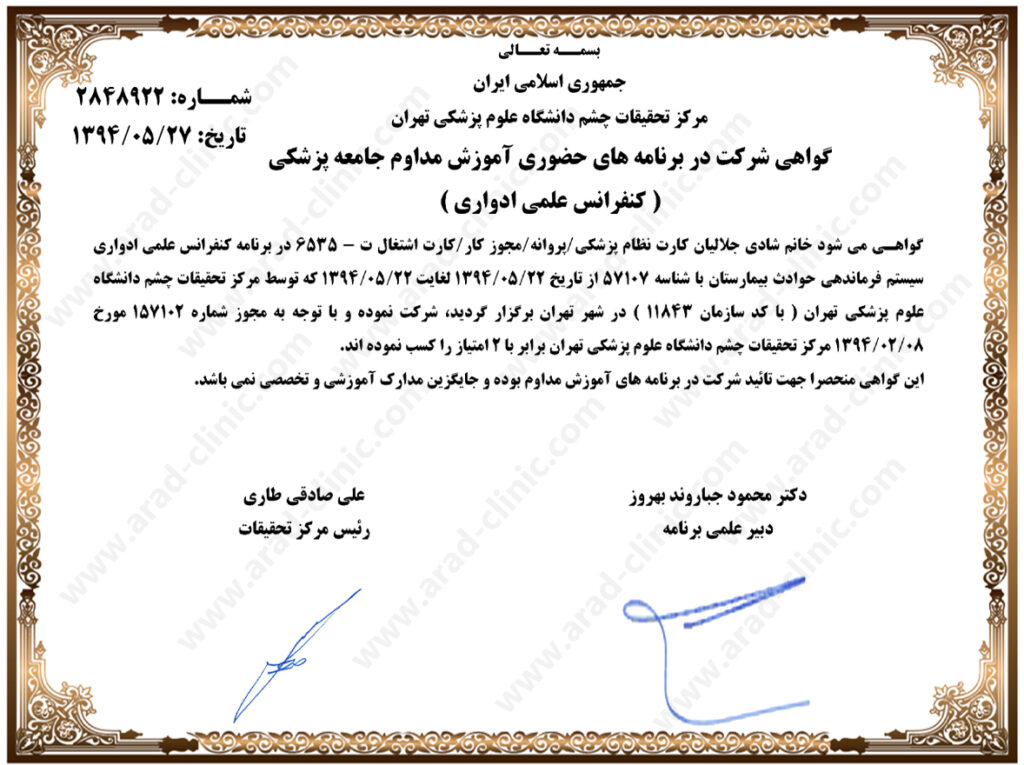 بسمــــه تعــــالی
جمهوری اسلامی ایران
مرکز تحقیقات چشم دانشگاه علوم پزشکی تهران
شمــــاره: ۲۸۴۸۹۲۲
تاریخ: ۱۳۹۴/۰۵/۲۷
گواهی شرکت در برنامه های حضوری آموزش مداوم جامعه پزشکی
( کنفرانس علمی ادواری )
گواهــی می شود خانم شادی جلالیان کارت نظام پزشکی/پروانه/مجوز کار/کارت اشتغال ت – ۶۵۳۵ در برنامه کنفرانس علمی ادواری
سیستم فرماندهی حوادث بیمارستان با شناسه ۵۷۱۰۷ از تاریخ ۱۳۹۴/۰۵/۲۲ لغایت ۱۳۹۴/۰۵/۲۲ که توسط مرکز تحقیقات چشم دانشگاه
علوم پزشکی تهران ( با کد سازمان ۱۱۸۴۳ ) در شهر تهران برگزار گردید، شرکت نموده و با توجه به مجوز شماره ۱۵۷۱۰۲ مورخ
۱۳۹۴/۰۲/۰۸ مرکز تحقیقات چشم دانشگاه علوم پزشکی تهران برابر با ۲ امتیاز را کسب نموده اند.
این گواهی منحصرا جهت تائید شرکت در برنامه های آموزش مداوم بوده و جایگزین مدارک آموزشی و تخصصی نمی باشد.
دکتر محمود جباروند بهروز
دبیر علمی برنامه
علی صادقی طاری
رئیس مرکز تحقیقات
www.arad-clinic.com